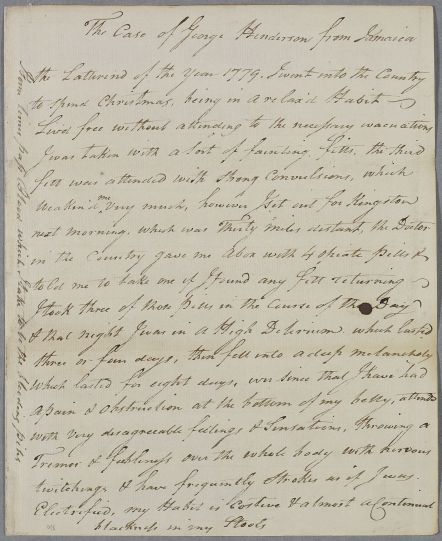 The Case of George Henderson from Jamaica
the Latterend of the Year 1779. I went into the Country
to spend Christmas, being in a relax'd Habit
Lived free without attending to the necessary evacuations
I was taken with a sort of fainting fitts, the third
fitt was attended with Strong Convulsions, which
Weaken'd me very much, however I set out for Kingston
next morning, which was Thirty miles distant, the Doctor
in the Country gave me a box with 4 opiate Pills &
told me to take one if I found any fitt returning
I took three of those Pills in the Course of the Day
& that night I was in a High Delerium which lasted
three or four days, then fell into a deep melancholy
which lasted for eight days, ever since that I have had
a pain & obstruction at the bottom of my belly, attended
with very disagreeable feelings & Sensations, throwing a
Tremor & feebleness over the whole body with nervous
twitchings & have frequently Strokes as if I was
Electrified, my Habit is Costive & almost a Continual
blackness in my Stools
some times pass Blood which I take to be the Bleeding Piles